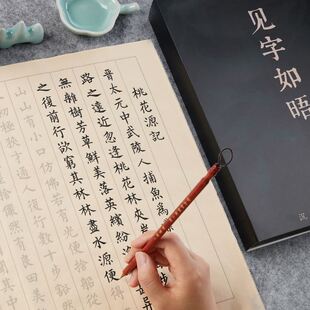 见字如晤
汉
桃花源記
晉太元中武陵人捕魚為
路之遠近忽逢桃花林夾岸
無雜樹芳草鮮美落英繽紛
異
之復前行欲窮其林林盡水源便
山山有小口仿佛若有
便
船從
初極狹
通人復行數十步豁
儼然有良田美